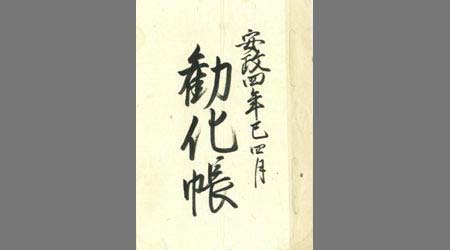 安政四年巳四月
勧化帳